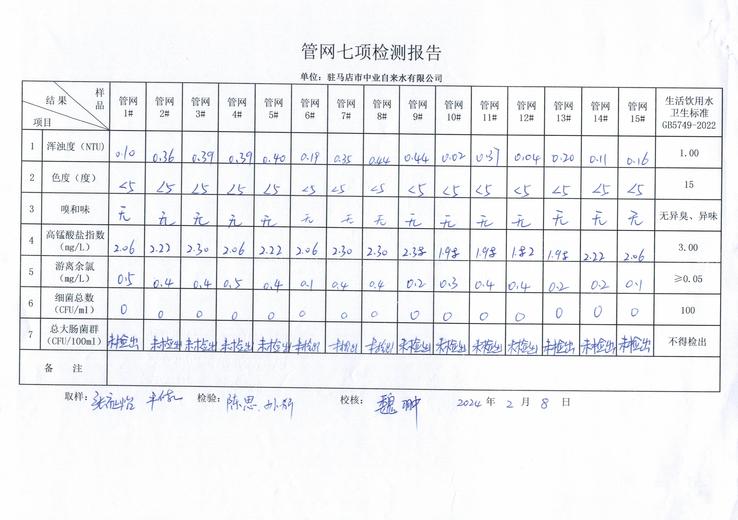 管网七项检测报告
单位：驻马店市中业自来水有限公司
结果 样品 项目 管网1# 管网2# 管网3# 管网4# 管网5# 管网6# 管网7# 管网8# 管网9# 管网10# 管网11# 管网12# 管网13# 管网14# 管网15# 生活饮用水卫生标准GB5749-2022
1 浑浊度（NTU） 0.10 0.36 0.39 0.39 0.40 0.19 0.35 0.44 0.44 0.02 0.37 0.04 0.20 0.11 0.16 1.00
2 色度（度） <5 <5 <5 <5 <5 <5 <5 <5 <5 <5 <5 <5 <5 <5 <5 15
3 嗅和味 无 无 无 无 无 无 无 无 无 无 无 无 无 无 无 无异臭、异味
4 高锰酸盐指数（mg/L） 2.06 2.22 2.30 2.06 2.22 2.06 2.30 2.30 2.22 2.06 3.00
5 游离余氯（mg/L） 0.5 0.4 0.4 0.5 0.4 0.1 0.4 0.4 0.2 0.3 0.4 0.4 0.2 0.2 0.1 ≥0.05
6 细菌总数（CFU/ml） 0 0 0 0 0 0 0 0 0 0 0 0 0 0 0 100
7 总大肠菌群（CFU/100ml） 未检出 未检出 未检出 未检出 未检出 未检出 未检出 未检出 未检出 未检出 未检出 未检出 未检出 未检出 未检出 不得检出
备 注
取样： 检验：陈思. 校核：魏翀 2024 年 2 月 8 日